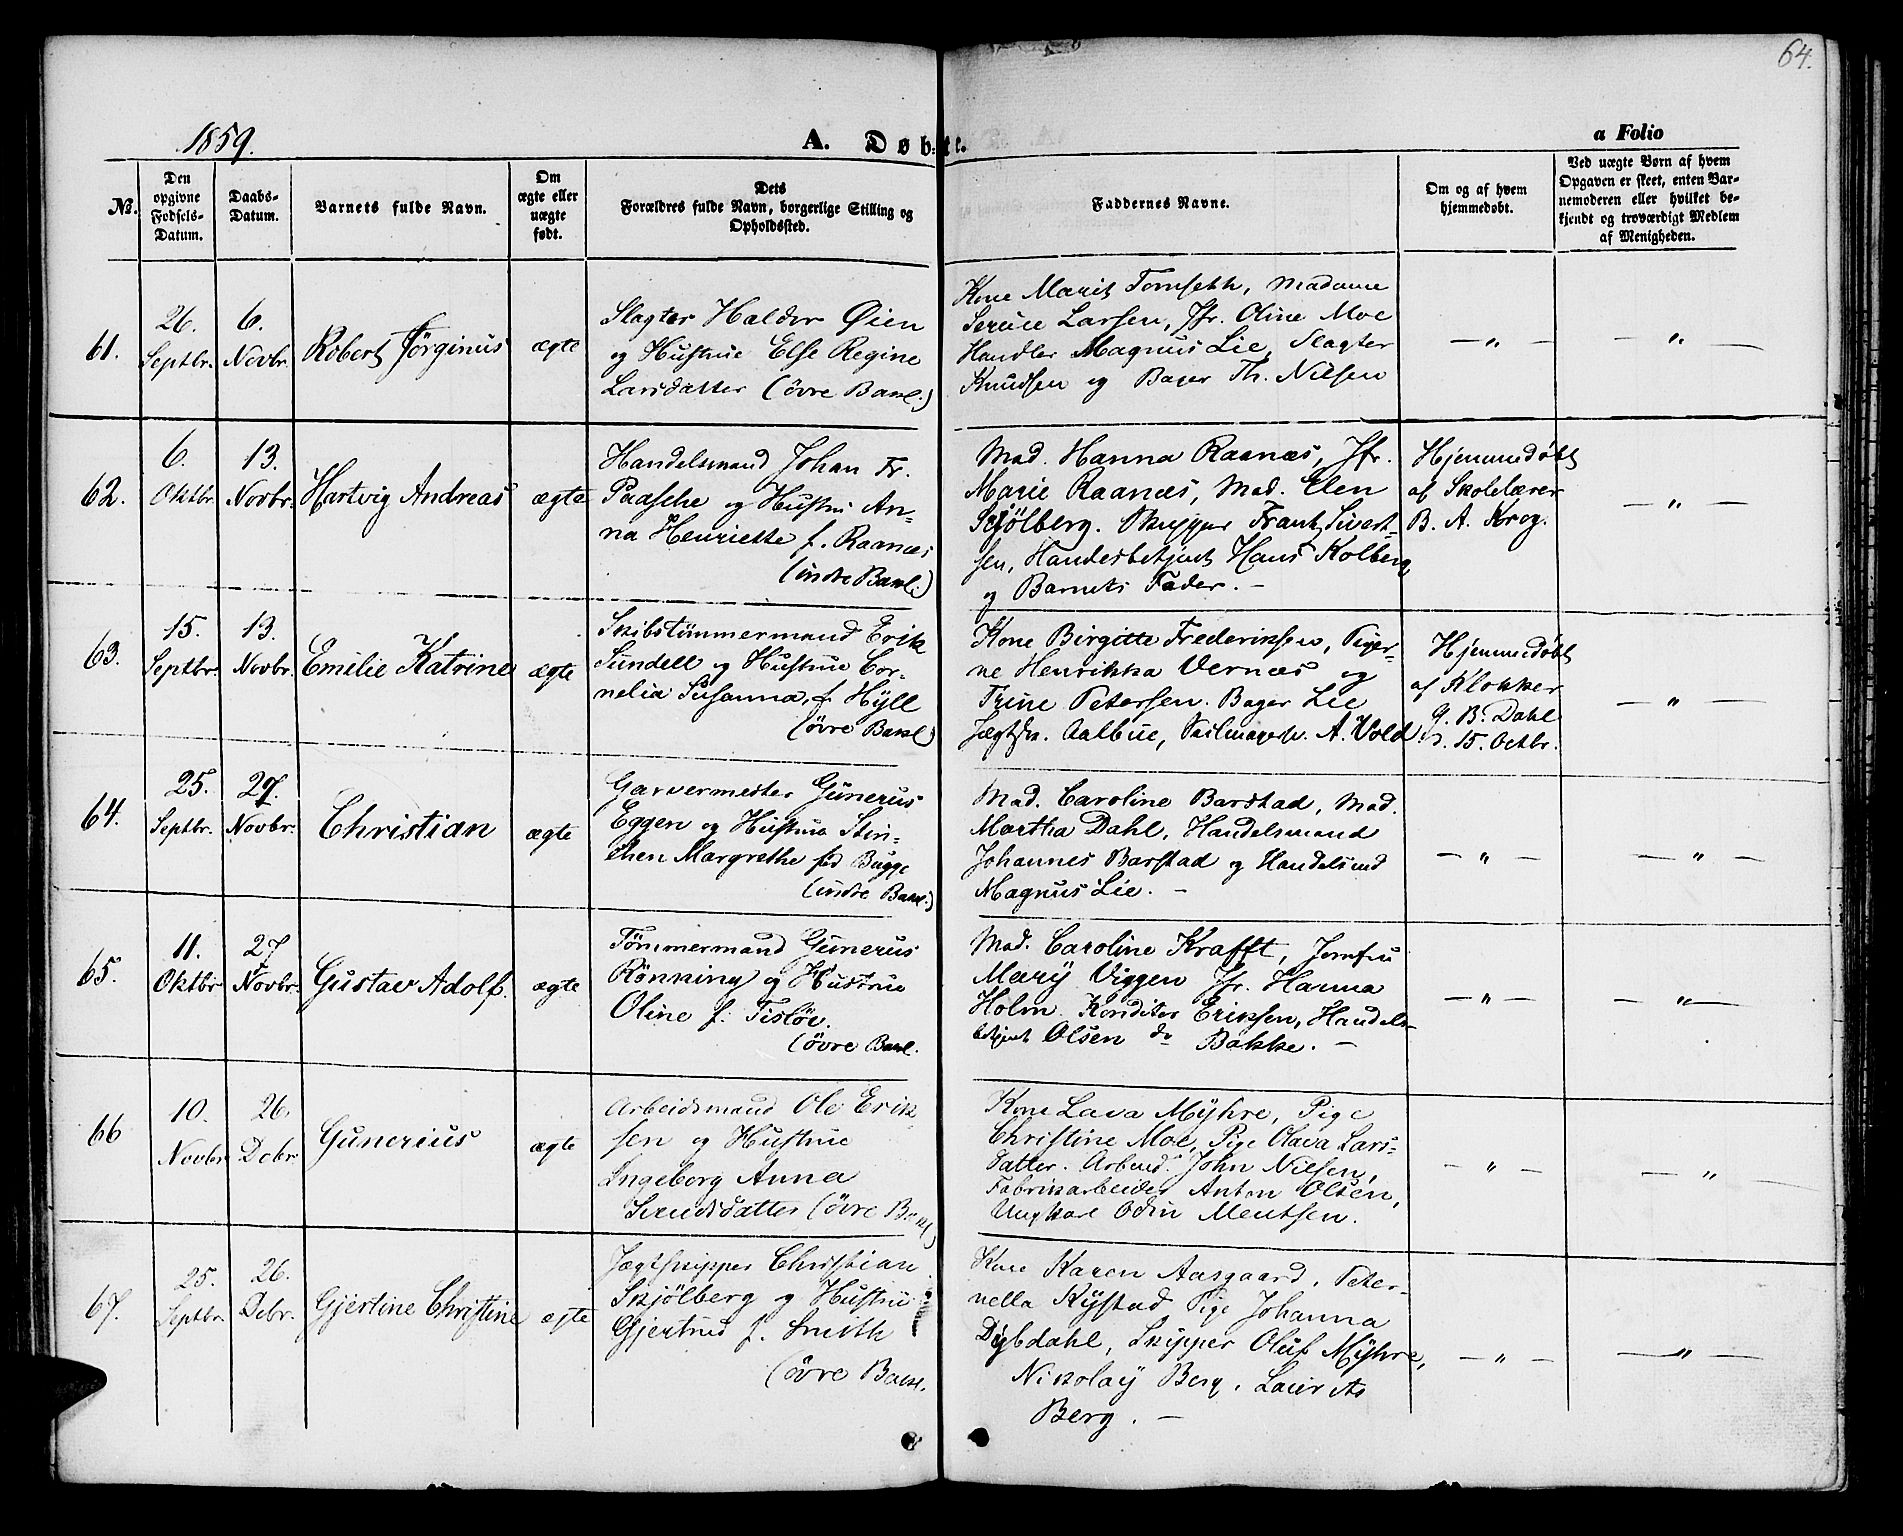 64.
1859.
A. Døbte.
a Folio
No.
Den opgivne Fødsels-Datum.
Daabs-Datum.
Barnets fulde Navn.
Om ægte eller uægte født.
Dets Forældres fulde Navn, borgerlige Stilling og Opholdssted.
Faddernes Navne.
Om og af hvem hjemmedøbt.
Ved uægte Børn af hvem Opgaven er skeet, enten Barnemoderen eller hvilket bekjendt og troværdigt Medlem af Menigheden.
61.
26. Septbr.
6. Novbr.
Robert Jørginus
ægte
Slagter Haldor Øien
og Hustrue Else Regine
Larsdatter (övre Bakl.)
Kone Marit Tomseth, Madame
Serine Larsen, Jfr. Oline Moe
Handler Magnus Lie, Slagter
Knudsen og Bager Th. Nilsen
— " —
— " —
62.
6. Oktbr.
13. Novbr.
Hartvig Andreas
ægte
Handelsmand Johan Fr.
Paasche og Hustru An-
na Henriette f. Raanæs
(indre Bakl.)
Mad. Hanna Raanæs, Jfr.
Marie Raanæs, Mad. Elen
Skjölberg. Skipper Frantz Sivert-
sen, Handesbetjent Hans Kolberg
og Barnets Fader. —
Hjemmedøbt
af Skolelærer
B. A. Krog.
— " —
63.
15. Septbr.
13. Novbr.
Emilie Katrine
ægte
Skibstömmermand Erik
Sundell og Hustrue Cor-
nelia Susanna, f. Hÿll
(övre Bakl.)
Kone Birgitte Frederiksen, Piger-
ne Henrikka Vernæs og
Trine Petersen. Bager Lie
Jægtsk. Aalbue, Seilmagersv. A. Vold
Hjemmedøbt
af Klokker
B. Dahl
15. Octbr.
— " —
64.
25. Septbr.
27. Novbr.
Christian
ægte
Garvermester Gunerus
Eggen og Hustrue Stin-
chen Margrethe fød Bugge
(indre Bakl.)
Mad. Caroline Barstad, Mad.
Martha Dahl, Handelsmand
Johannes Barstad og Handelsmd
Magnus Lie. —
— " —
— " —
65.
11. Oktbr
27 Novbr.
Gustav Adolf.
ægte
Tömmermand Gunerus
Rönning og Hustrue
Oline f. Tislöe.
(övre Bakl.
Mad. Caroline Krafft, Jomfru
Marÿ Viggen Jfr. Hanna
Holm. Konditor Eriksen, Handels-
betjent Olsen do Bakke. —
— " —
— " —
66
10. Novbr
26. Debr.
Gunerius
ægte
Arbeidsmand Ole Erik-
sen og Hustrue
Ingeborg Anna
Svendsdatter (övre Bakl)
Kone Lava Mÿhre, Pige
Christine Moe, Pige Olava Lars-
datter. Arbmd. John Nilsen,
Fabrikarbeider Anton Olsen,
Ungkarl Odin Mentsen.
— " —
— "
67.
25. Septbr.
26. Debr.
Gjertine Christine
ægte
Jægtskipper Christian
Skjölberg og Hustrue
Gjertrud f. Smith
(övre Bakl.
Kone Karen Aasgaard, Peter-
nella Rÿstad Pige Johanna
Dÿbdahl, Skipper Oluf Mÿhre,
Nikolaÿ Berg, Laurits
Berg. —
— " —
— " —